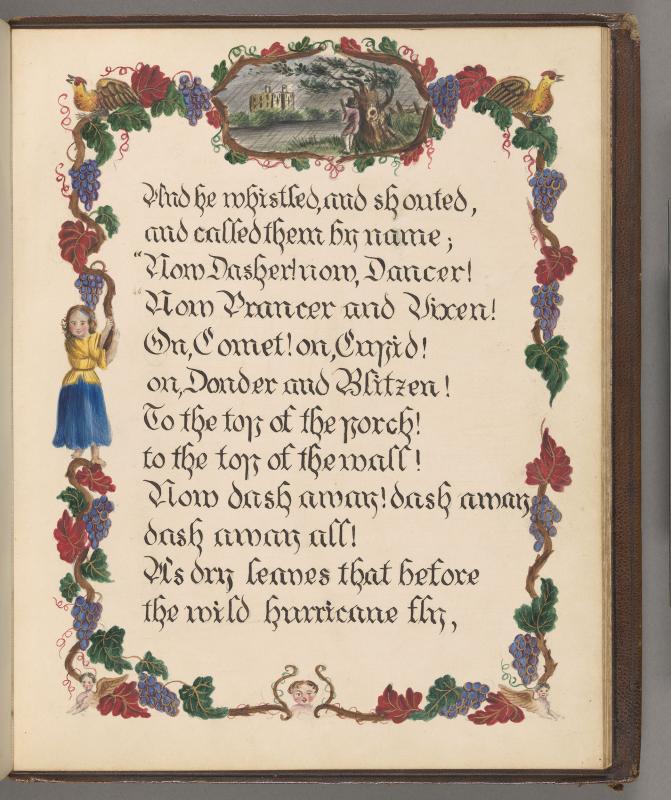 And he whistled, and shouted,
and called them by name;
"Now Dasher! now, Dancer!
"Now Prancer and Vixen!
On, Comet! on, Cupid!
on, Donder and Blitzen!
To the top of the porch!
to the top of the wall!
Now dash away! dash away
dash away all!
As dry leaves that before
the wild hurricane fly,